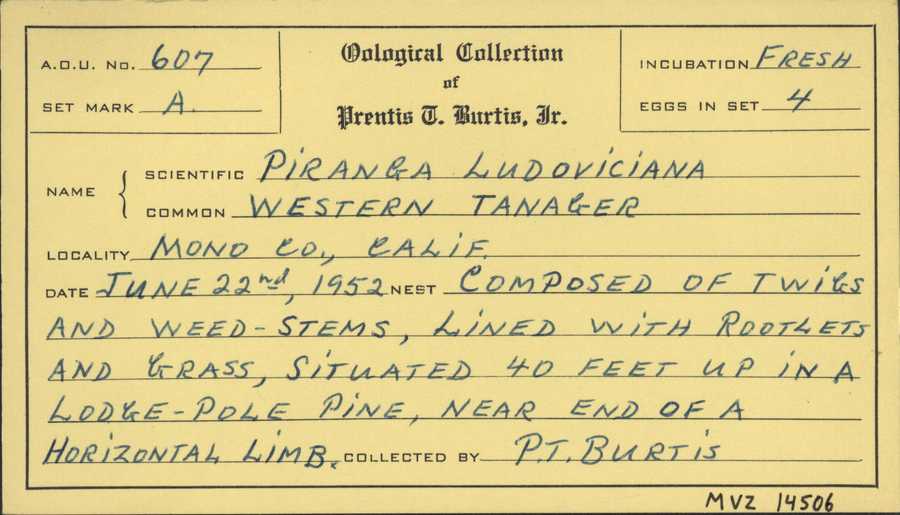 A.O.U. No. 607
SET MARK A.
Oological Collection
of
Prentis T. Burtis, Jr.
INCUBATION FRESH
EGGS IN SET 4
NAME
SCIENTIFIC PIRANGA LUDOVICIANA
COMMON WESTERN TANAGER
LOCALITY MONO CO., CALIF.
DATE JUNE 22nd, 1952 NEST COMPOSED OF TWIGS
AND WEED-STEMS, LINED WITH ROOTLETS
AND GRASS, SITUATED 40 FEET UP IN A
LODGE-POLE PINE, NEAR END OF A
HORIZONTAL LIMB. COLLECTED BY P.T. BURTIS
MVZ 14506